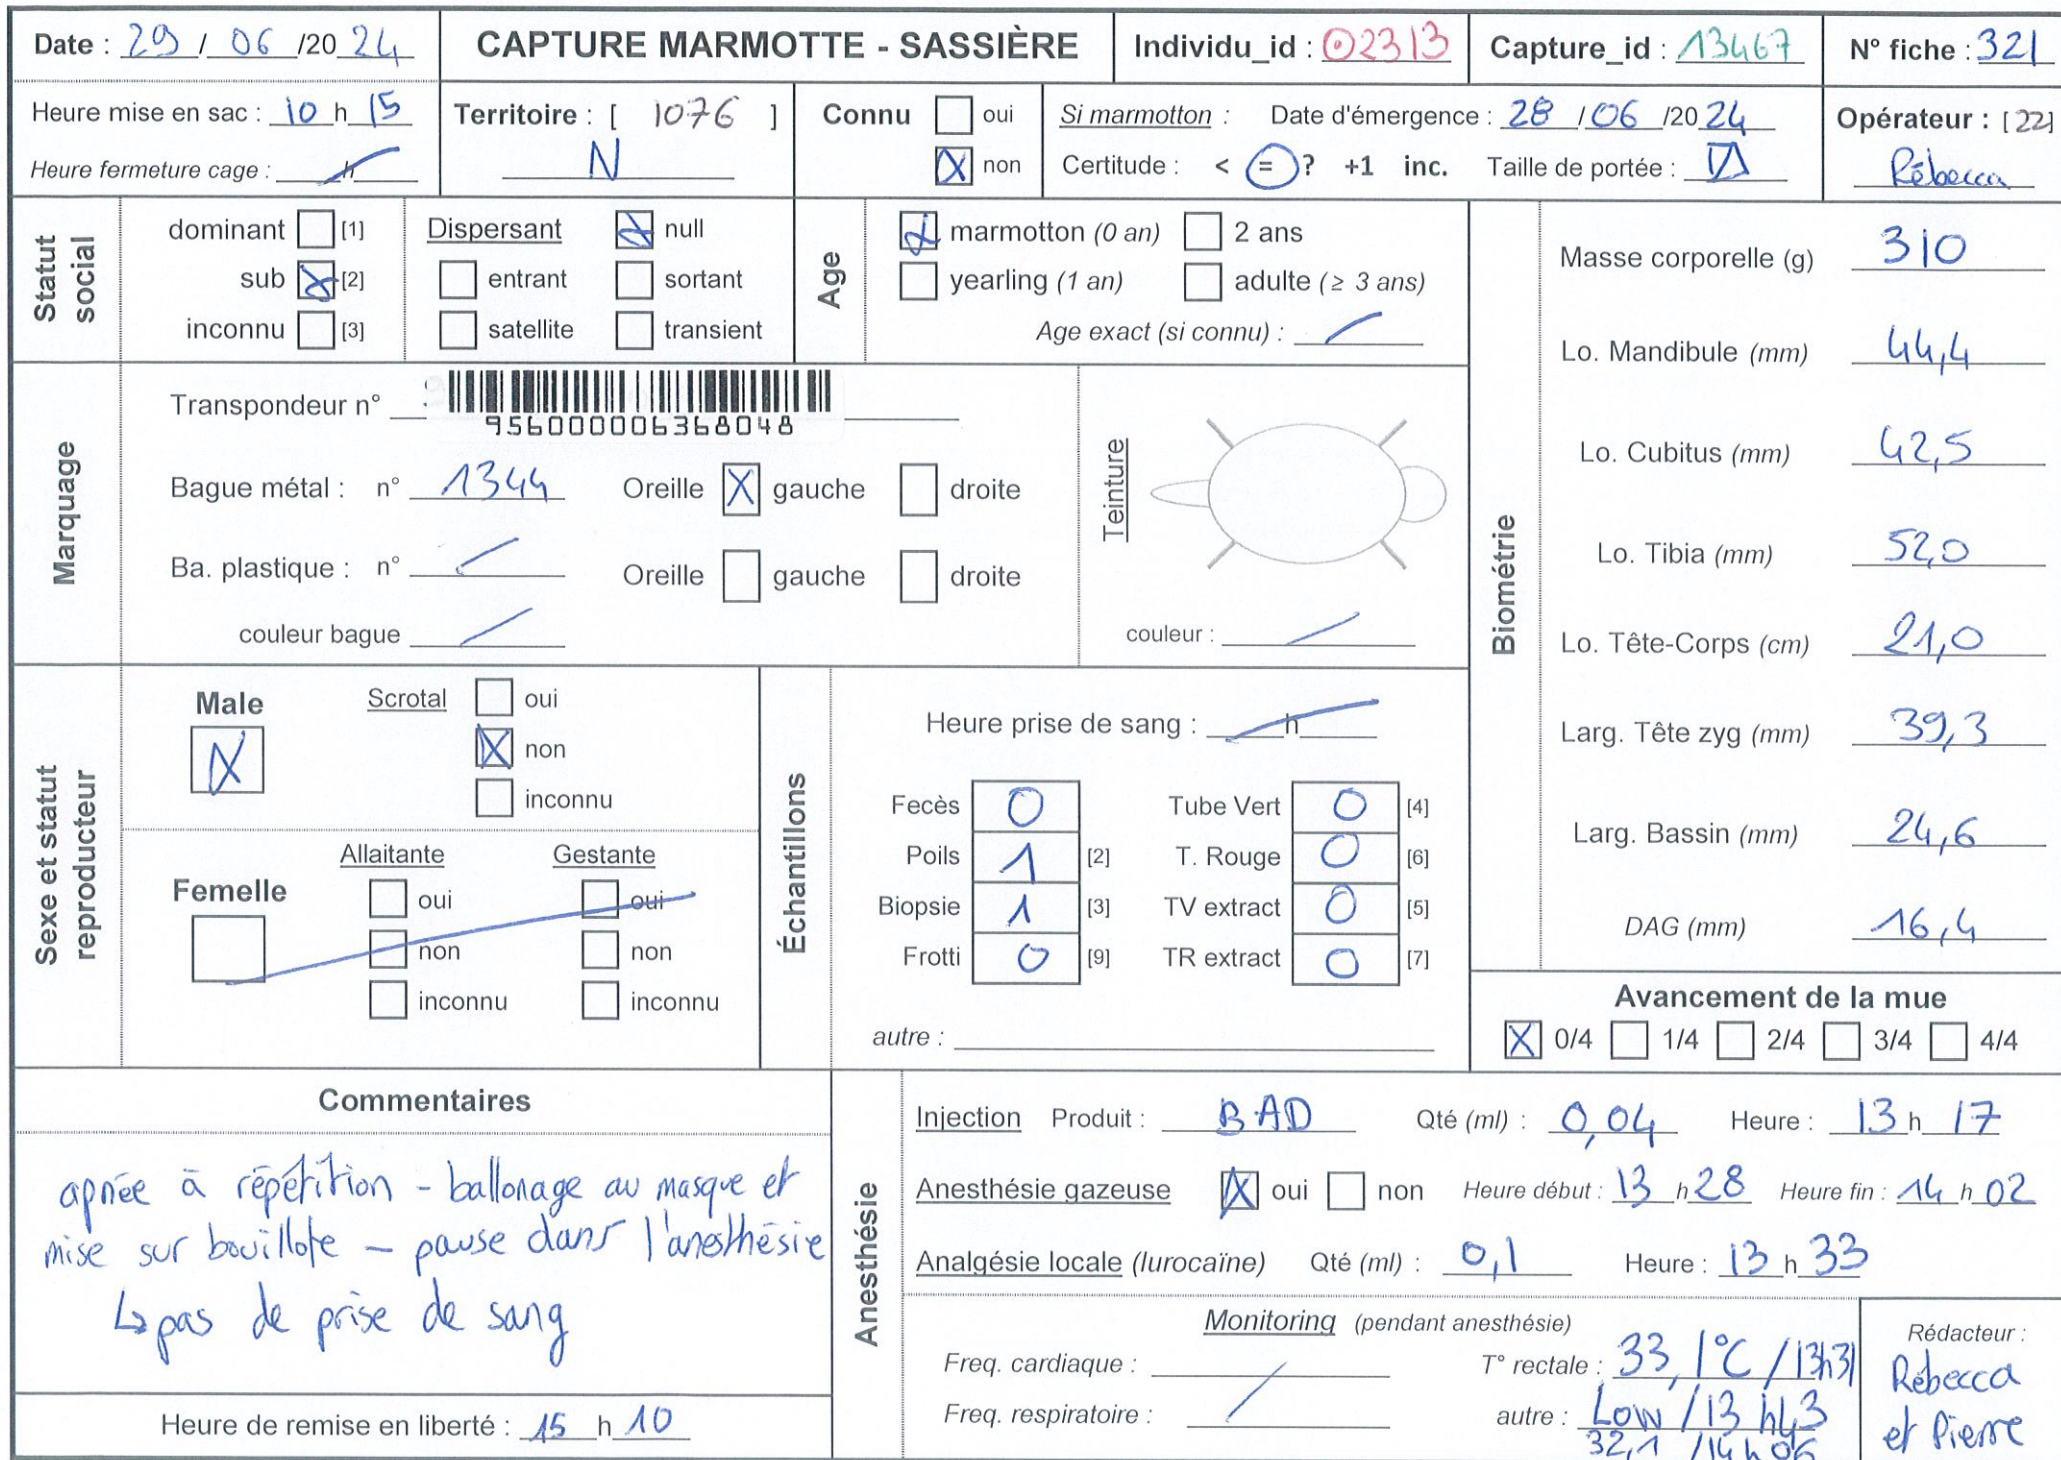 Date : 29 / 06 /20 24 CAPTURE MARMOTTE - SASSIÈRE Individu_id : 02313 Capture_id : 13467 N° fiche : 321
Heure mise en sac : 10 h 15 Territoire : [ 1076 ] Connu oui Si marmotton : Date d'émergence : 28 /06 /20 24 Opérateur : [22]
Heure fermeture cage : h N non Certitude : < = ? +1 inc. Taille de portée : Rébecca
Statut social
dominant [1] Dispersant null
sub [2] entrant sortant
inconnu [3] satellite transient
Age
marmotton (0 an) 2 ans
yearling (1 an) adulte (≥ 3 ans)
Age exact (si connu) :
Marquage
Transpondeur n°
956000006368048
Bague métal : n° 1344 Oreille gauche droite
Ba. plastique : n° Oreille gauche droite
couleur bague
Teinture
couleur :
Biométrie
Masse corporelle (g) 310
Lo. Mandibule (mm) 44,4
Lo. Cubitus (mm) 42,5
Lo. Tibia (mm) 52,0
Lo. Tête-Corps (cm) 21,0
Larg. Tête zyg (mm) 39,3
Larg. Bassin (mm) 24,6
DAG (mm) 16,4
Sexe et statut reproducteur
Male Scrotal oui
non
inconnu
Allaitante Gestante
Femelle oui oui
non non
inconnu inconnu
Échantillons
Heure prise de sang : h
Fecès 0 Tube Vert 0 [4]
Poils 1 [2] T. Rouge 0 [6]
Biopsie 1 [3] TV extract 0 [5]
Frotti 0 [9] TR extract 0 [7]
autre :
Avancement de la mue
0/4 1/4 2/4 3/4 4/4
Commentaires
apnée à répétition - ballonage au masque et
mise sur bouillote – pause dans l'anesthésie
↳ pas de prise de sang
Heure de remise en liberté : 15 h 10
Anesthésie
Injection Produit : BAD Qté (ml) : 0,04 Heure : 13 h 17
Anesthésie gazeuse oui non Heure début : 13 h 28 Heure fin : 14 h 02
Analgésie locale (lurocaïne) Qté (ml) : 0,1 Heure : 13 h 33
Monitoring (pendant anesthésie)
Freq. cardiaque : T° rectale : 33,1°C / 13h31
Freq. respiratoire : autre : Low / 13 h43
32,1 / 14 h 06
Rédacteur :
Rébecca
et Pierre